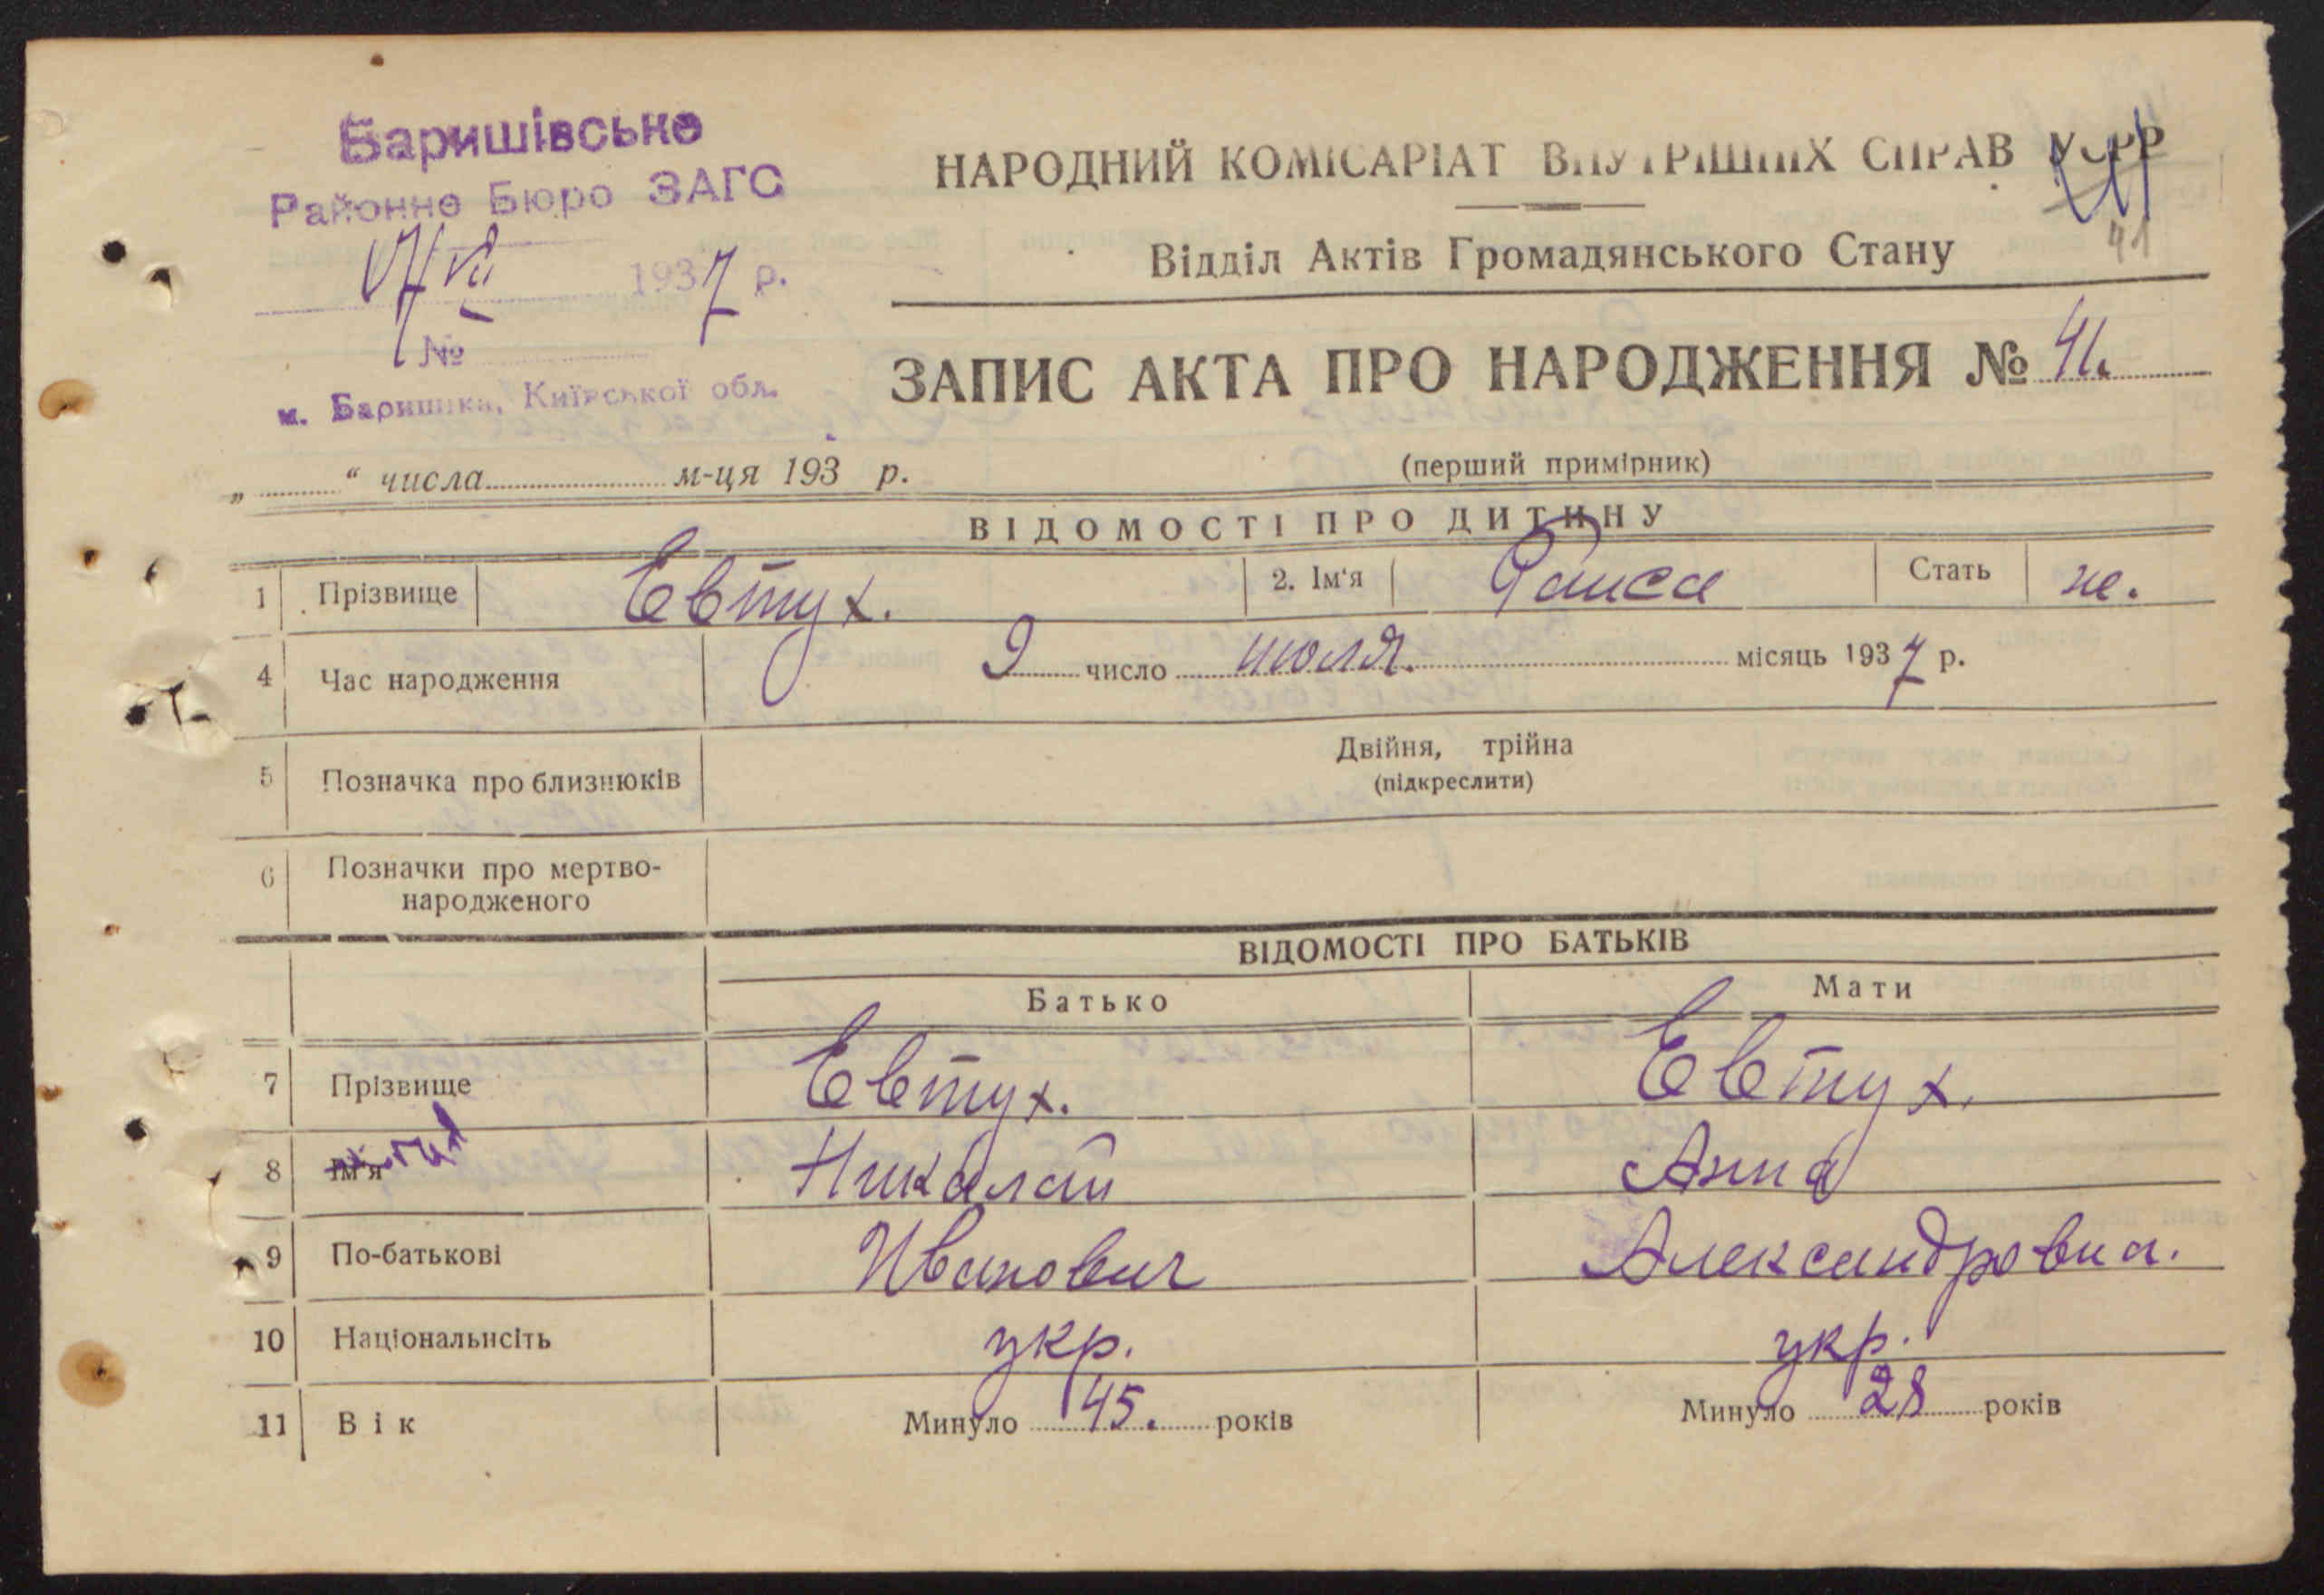 Баришівське
Районне Бюро ЗАГС
17/VII 1937 р.
№
м. Баришівка, Київської обл.
НАРОДНИЙ КОМІСАРІАТ ВНУТРІШНІХ СПРАВ УСРР
41
Відділ Актів Громадянського Стану
ЗАПИС АКТА ПРО НАРОДЖЕННЯ № 41.
„ “ числа м-ця 193 р.
(перший примірник)
ВІДОМОСТІ ПРО ДИТИНУ
1 Прізвище Евтух. 2. Ім‘я Раиса Стать ж.
4 Час народження 9 число июля. місяць 1937 р.
5 Позначка про близнюків Двійня, трійна
(підкреслити)
6 Позначки про мертво-
народженого
ВІДОМОСТІ ПРО БАТЬКІВ
Батько Мати
7 Прізвище Евтух. Евтух.
8 Ім‘я Николай Анна
9 По-батькові Иванович Александровна.
10 Національнсіть укр. укр.
11 Вік Минуло 45. років Минуло 28 років